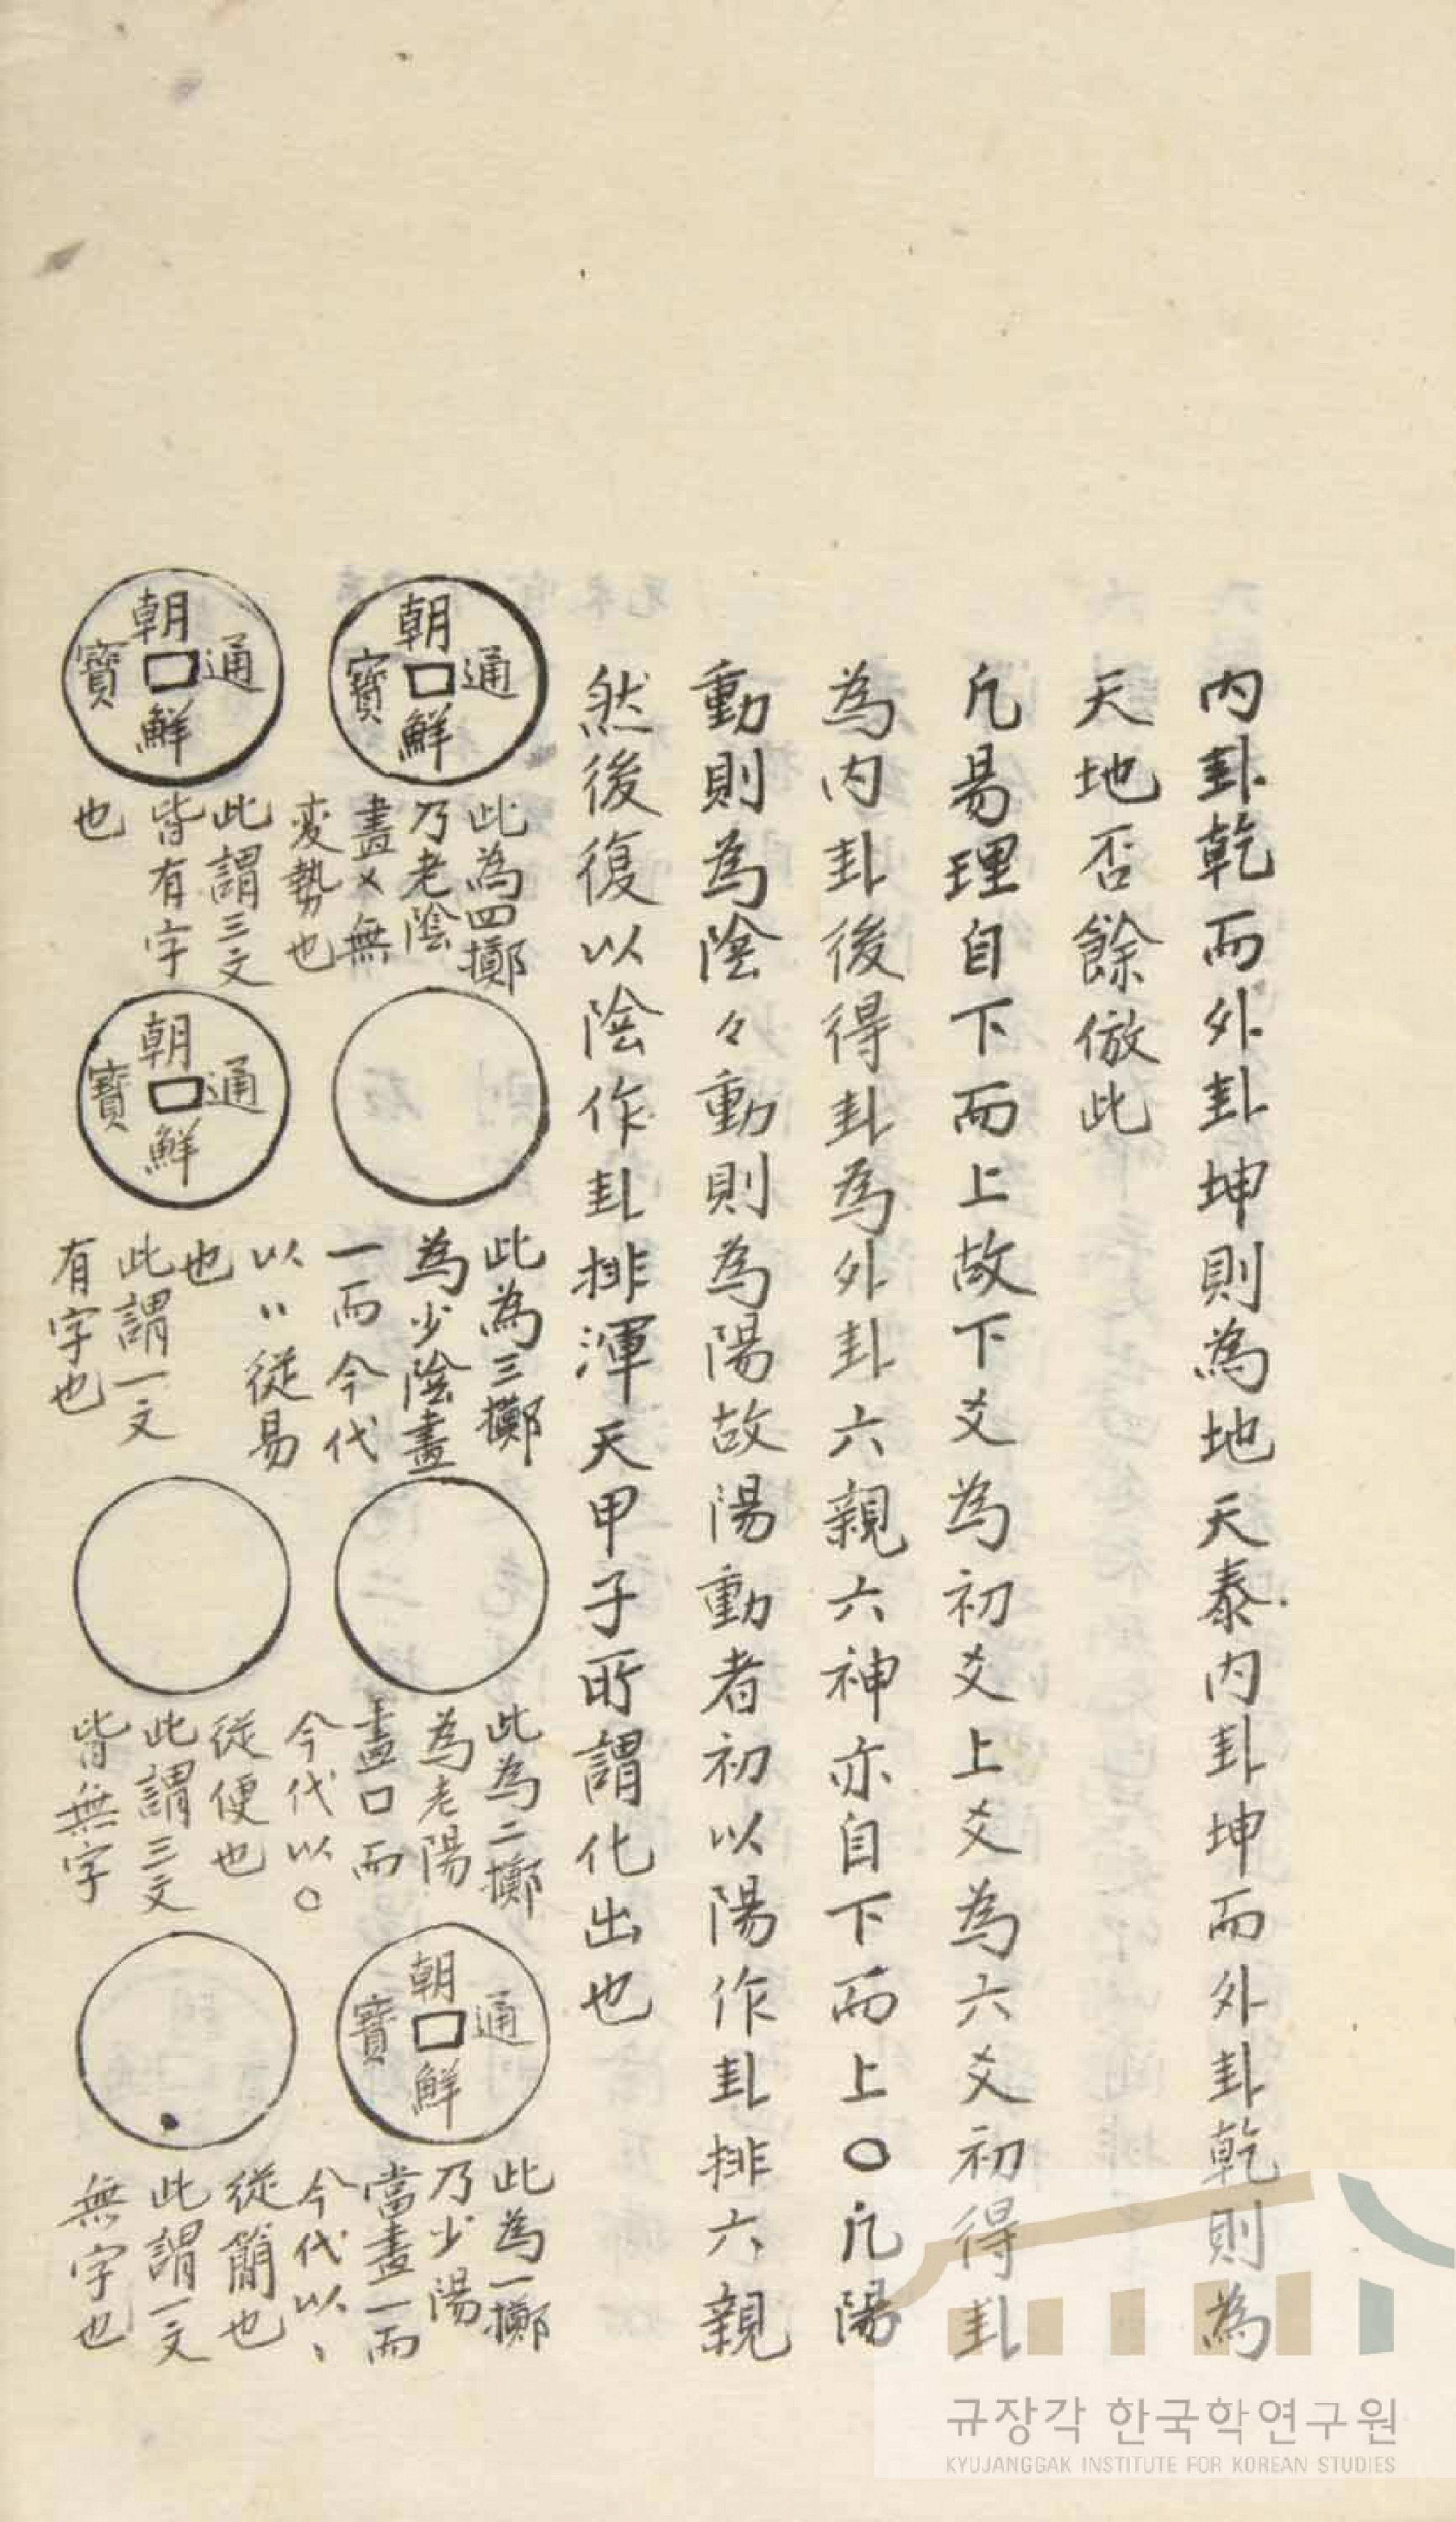 內卦乾而外卦坤則為地天泰內卦坤而外卦乾則為
天地否餘倣此
凡易理自下而上故下爻為初爻上爻為六爻初得卦
為內卦後得卦為外卦六親六神亦自下而上〇凡陽
動則為陰々動則為陽故陽動者初以陽作卦排六親
然後復以陰作卦排渾天甲子所謂化出也
朝鮮通寶
此為四擲
乃老陰
畫×無
変勢也
此為三擲
為少陰畫
一而今代
以〃從易
也
此為二擲
為老陽
畫口而
今代以〇
從便也
朝鮮通寶
此為一擲
乃少陽
當畫一而
今代以、
從簡也
朝鮮通寶
此謂三文
皆有字
也
朝鮮通寶
此謂一文
有字也
此謂三文
皆無字
此謂一文
無字也
규장각 한국학연구원
KYUJANGGAK INSTITUTE FOR KOREAN STUDIES